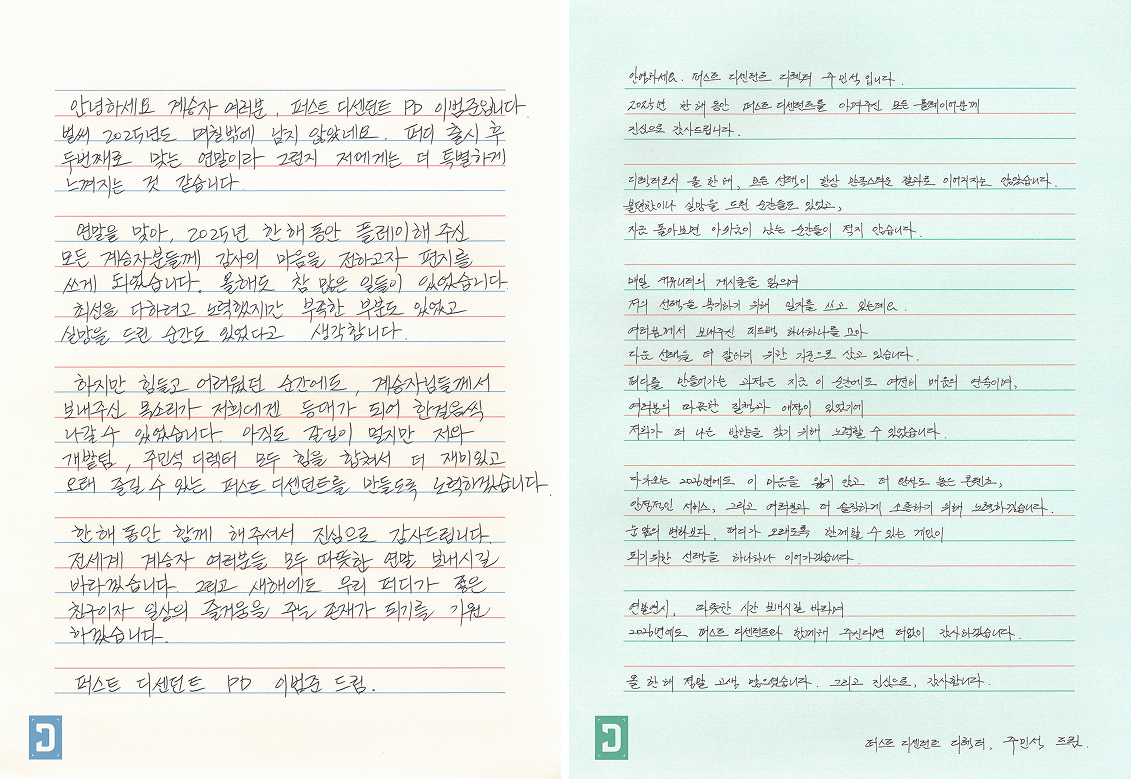 안녕하세요 계승자 여러분, 퍼스트 디센던트 PD 이범준입니다.
벌써 2025년도 며칠밖에 남지 않았네요. 퍼디 출시 후
두번째로 맞는 연말이라 그런지 저에게는 더 특별하게
느껴지는 것 같습니다.
연말을 맞아, 2025년 한해동안 플레이해 주신
모든 계승자분들께 감사의 마음을 전하고자 편지를
쓰게 되었습니다. 올해도 참 많은 일들이 있었습니다.
최선을 다하려고 노력했지만 부족한 부분도 있었고
실망을 드린 순간도 있었다고 생각합니다.
하지만 힘들고 어려웠던 순간에도, 계승자님들께서
보내주신 목소리가 저희에겐 등대가 되어 한걸음씩
나갈 수 있었습니다. 아직도 갈길이 멀지만 저와
개발팀, 주민석 디렉터 모두 힘을 합쳐서 더 재미있고
오래 즐길 수 있는 퍼스트 디센던트를 만들도록 노력하겠습니다.
한해 동안 함께 해주셔서 진심으로 감사드립니다.
전세계 계승자 여러분들 모두 따뜻한 연말 보내시길
바라겠습니다. 그리고 새해에도 우리 퍼디가 좋은
친구이자 일상의 즐거움을 주는 존재가 되기를 기원
하겠습니다.
퍼스트 디센던트 PD 이범준 드림.
안녕하세요. 퍼스트 디센던트 디렉터 주민석입니다.
2025년 한해 동안 퍼스트 디센던트를 아껴주신 모든 플레이어분께
진심으로 감사드립니다.
디렉터로서 올 한 해, 모든 선택이 항상 만족스러운 결과로 이어지지는 않았습니다.
불편함이나 실망을 드린 순간들도 있었고,
지금 돌아보면 아쉬움이 남는 순간들이 적지 않습니다.
매일 커뮤니티의 게시글을 읽으며
저의 선택을 복기하기 위해 일지를 쓰고 있는데요.
여러분께서 보내주신 피드백 하나하나를 모아
다음 선택을 더 잘하기 위한 기준으로 삼고 있습니다.
퍼디를 만들어가는 과정은 지금 이 순간에도 여전히 배움의 연속이며,
여러분의 따뜻한 질책과 애정이 있었기에
저희가 더 나은 방향을 찾기 위해 노력할 수 있었습니다.
다가오는 2026년에도 이 마음을 잃지 않고 더 완성도 높은 콘텐츠,
안정적인 서비스, 그리고 여러분과 더 솔직하게 소통하기 위해 노력하겠습니다.
눈앞의 변화보다, 퍼디가 오래도록 함께할 수 있는 게임이
되기 위한 선택을 하나하나 이어가겠습니다.
연말연시, 따뜻한 시간 보내시길 바라며
2026년에도 퍼스트 디센던트와 함께해 주신다면 더없이 감사하겠습니다.
올 한해 정말 고생 많으셨습니다. 그리고 진심으로, 감사합니다.
퍼스트 디센던트 디렉터, 주민석 드림.